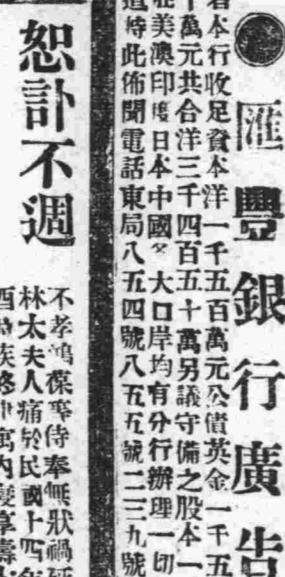 匯豐銀行廣告
本行收足資本洋一千五百萬元公債英金一千五
萬元共合洋三千四百五十萬另議守備之股本一
美澳印度日本中國各大口岸均有分行辦理一切
特此佈聞電話東局八五四號八五五號二三九號
恕訃不週
不孝鴻葆等侍奉無狀禍延
林太夫人痛於民國十四年
酉時疾終內寢享壽